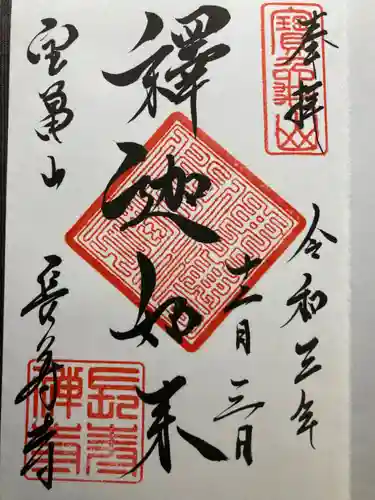 奉拝
寳亀山
令和三年
十二月三日
釋迦如来
宝亀山
長寿寺
長寿禅寺